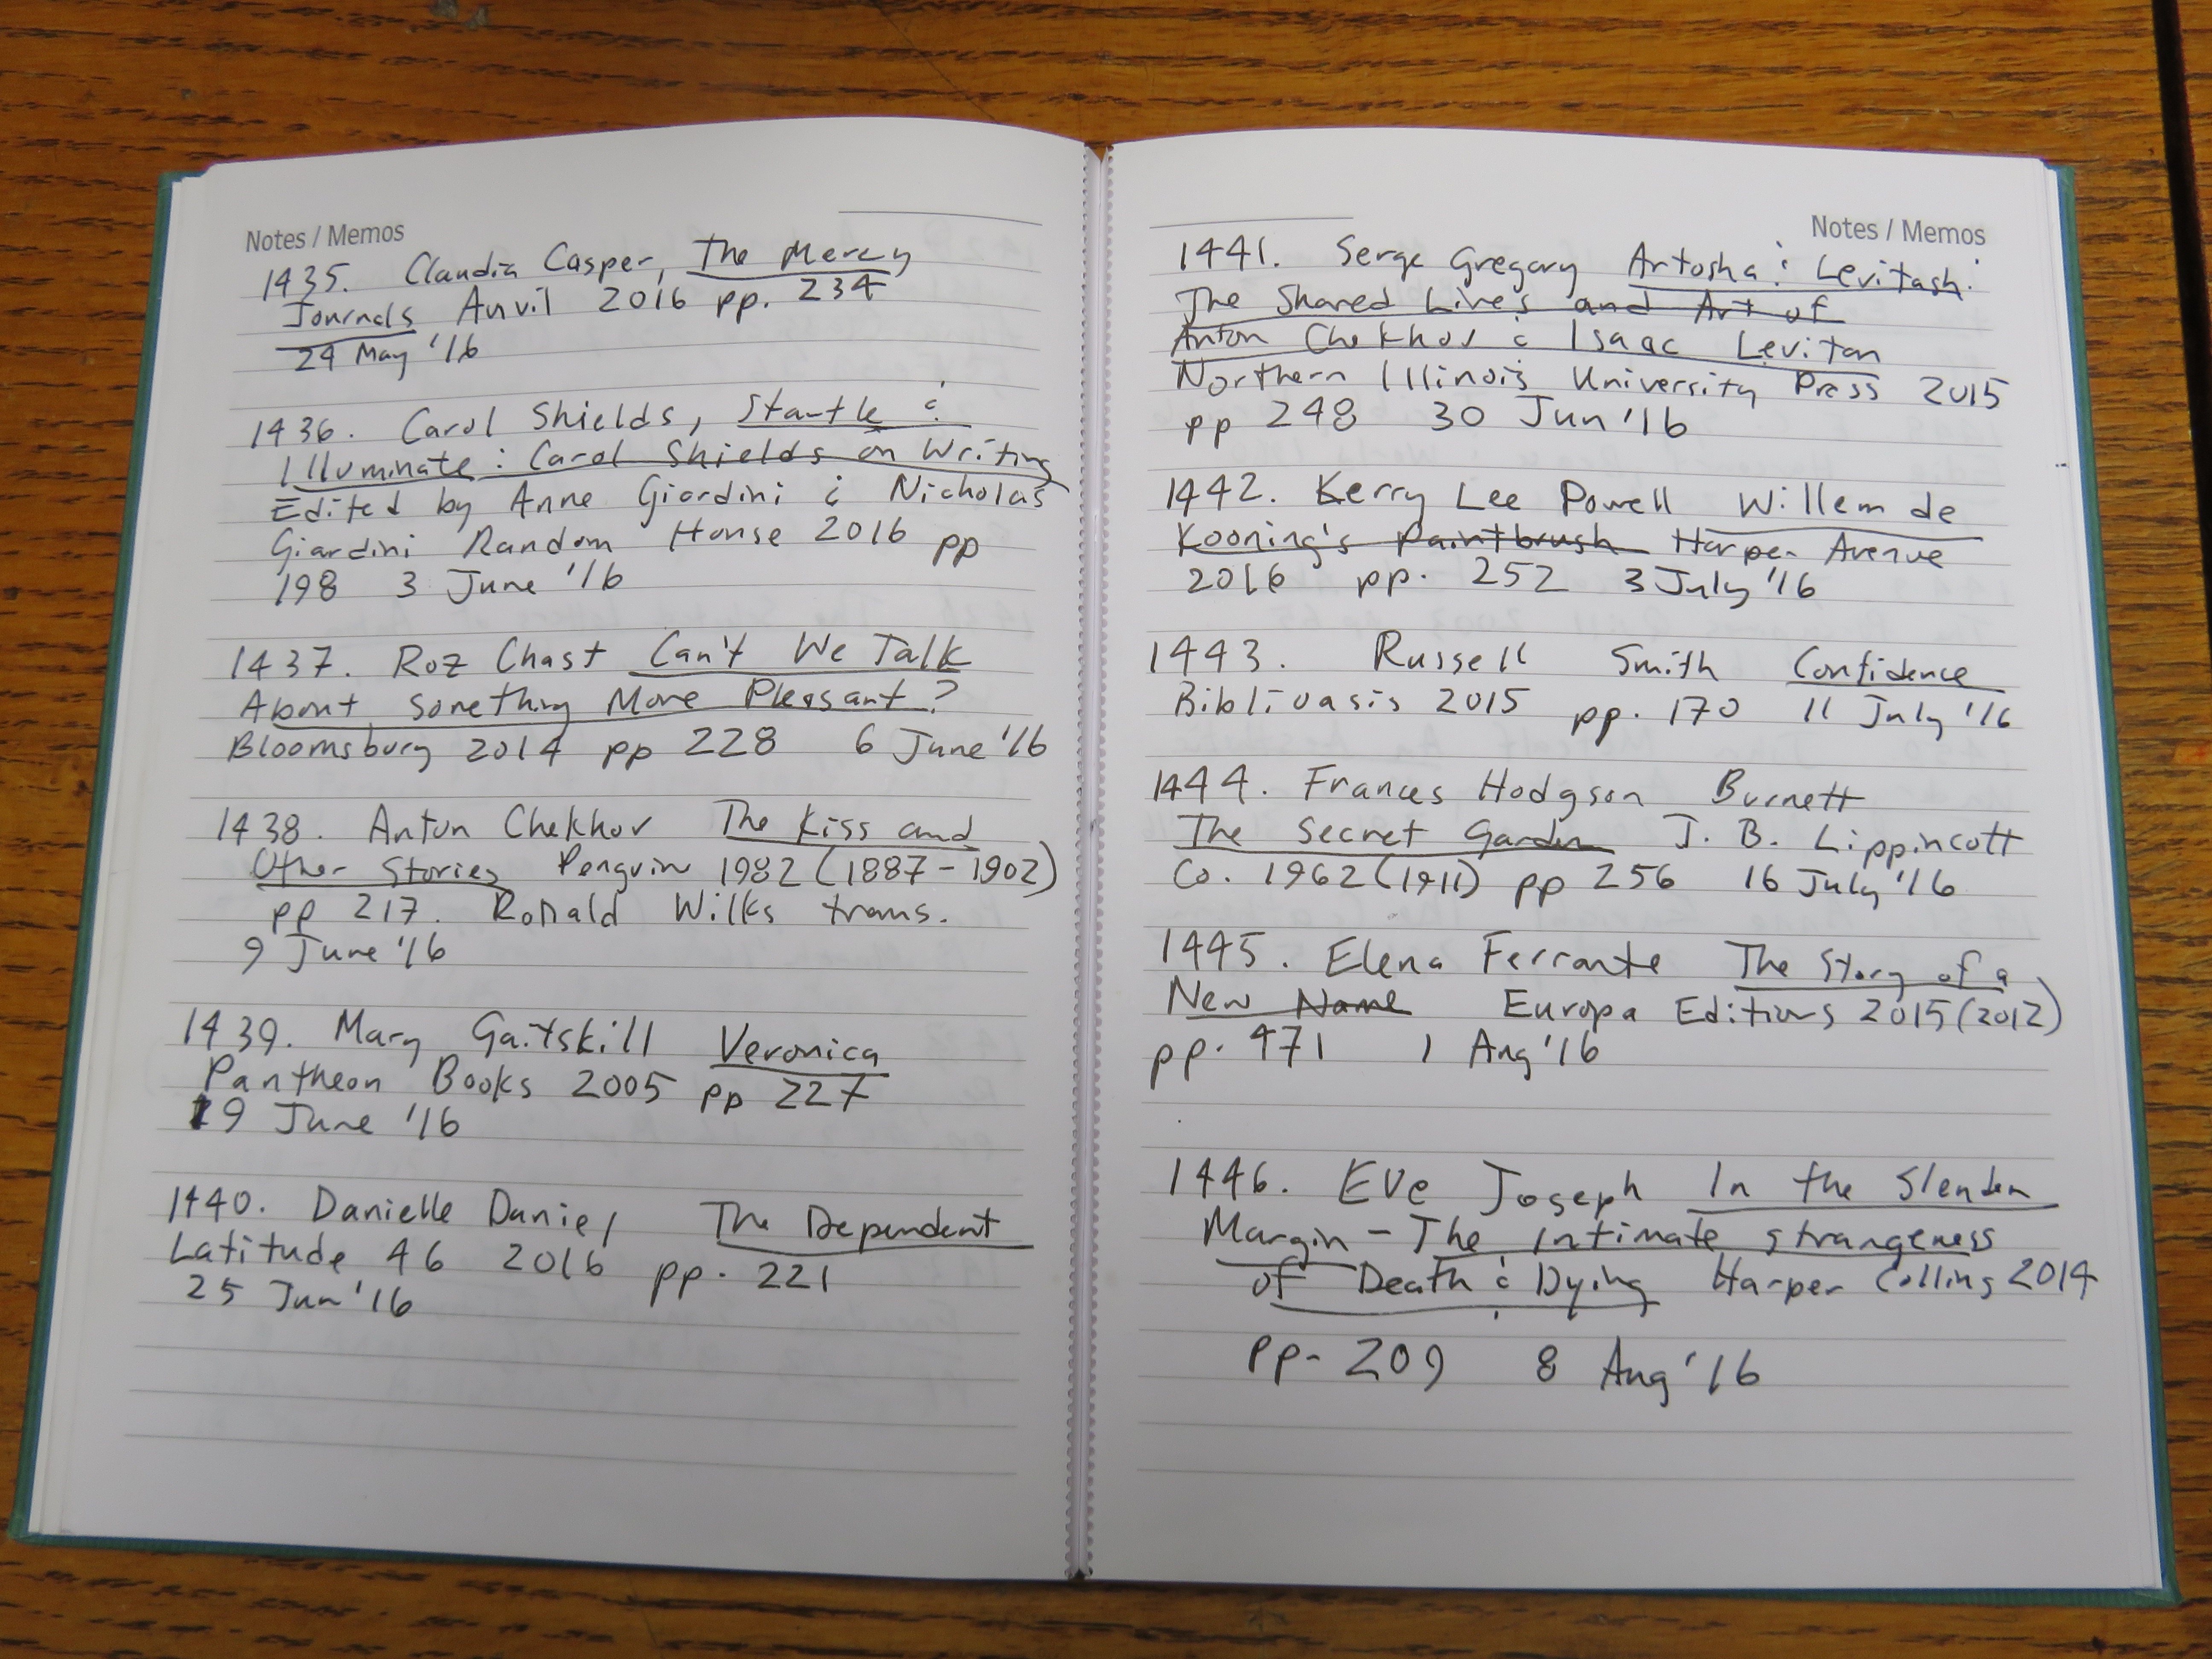 Notes / Memos
1435. Claudia Casper, The Mercy
Journals Anvil 2016 pp. 234
24 May '16
1436. Carol Shields, Startle &
Illuminate: Carol Shields on Writing
Edited by Anne Giardini & Nicholas
Giardini Random House 2016 pp
198 3 June '16
1437. Roz Chast Can't We Talk
About Something More Pleasant?
Bloomsbury 2014 pp 228 6 June '16
1438. Anton Chekhov The Kiss and
Other Stories Penguin 1982 (1887-1902)
pp 217. Ronald Wilks trans.
9 June '16
1439. Mary Gaitskill Veronica
Pantheon Books 2005 pp 227
19 June '16
1440. Danielle Daniel The Dependent
Latitude 46 2016 pp. 221
25 Jun '16
Notes / Memos
1441. Serge Gregory Artosha & Levitash:
The Shared Lives and Art of
Anton Chekhov & Isaac Levitan
Northern Illinois University Press 2015
pp 248 30 Jun '16
1442. Kerry Lee Powell Willem de
Kooning's Paintbrush Harper Avenue
2016 pp. 252 3 July '16
1443. Russell Smith Confidence
Biblioasis 2015 pp. 170 11 July '16
1444. Frances Hodgson Burnett
The Secret Garden J. B. Lippincott
Co. 1962 (1911) pp 256 16 July '16
1445. Elena Ferrante The Story of a
New Name Europa Editions 2015 (2012)
pp. 471 1 Aug '16
1446. Eve Joseph In the Slender
Margin - The Intimate strangeness
of Death & Dying Harper Collins 2014
pp. 209 8 Aug '16